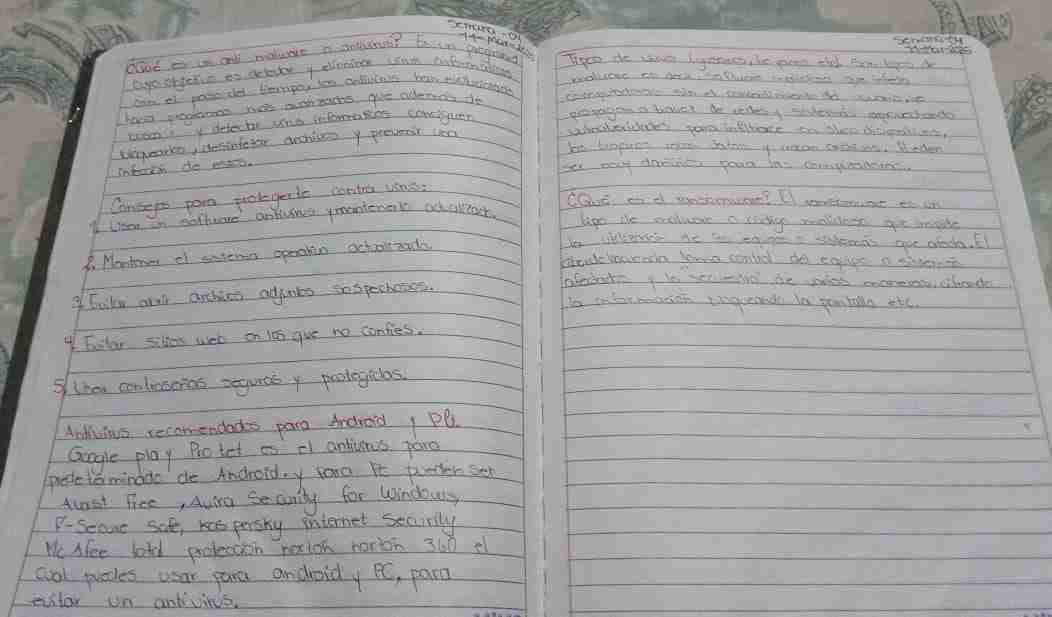 Semana-04
11-Mar-2025
¿Qué es un anti malware o antivirus? Es un programa
cuyo objetivo es detectar y eliminar virus informáticos
con el paso del tiempo, los antivirus han evolucionado
hacia programas más avanzados que además de
buscar y detectar virus informáticos consiguen
bloquearlos, desinfectar archivos y prevenir una
infección de estos.
Consejos para protegerte contra virus:
1. Usar un software antivirus y mantenerlo actualizado.
2. Mantener el sistema operativo actualizado
3. Evitar abrir archivos adjuntos sospechosos.
4. Evitar sitios web en los que no confies.
5. Usar contraseñas seguras y protegidas.
Antivirus recomendados para Android y PC.
Google play Protet es el antivirus para
predetaminado de Android. y para Pc pueden ser
Avast Free, Avira Security for Windows,
F-Secure Safe, kaspersky internet Security
Mc Afee total protección norton norton 360 el
cual puedes usar para android y PC, para
evitar un antivirus.
Semana-04
11-mar-2025
Tipos de virus y gusanos, lo peor del Son tipos de
malware es decir software malicioso que infecta
computadoras sin el consentimiento del usuario, se
propagan a traves de redes y sistemas aprovechando
vulnerabilidades para infiltrarse en otros dispositivos,
los troyanos roban datos y Pueden
ser muy dañinos para las computadoras.
¿Qué es el ransomware? El ransomware es un
tipo de malware o codigo malicioso que impide
la utilización de los equipos o sistemas que afecta. El
ciberdelincuente toma control del equipo o sistema
infectado y lo "secuestra" de varias maneras, cifrando
la información, bloqueando la pantalla etc.